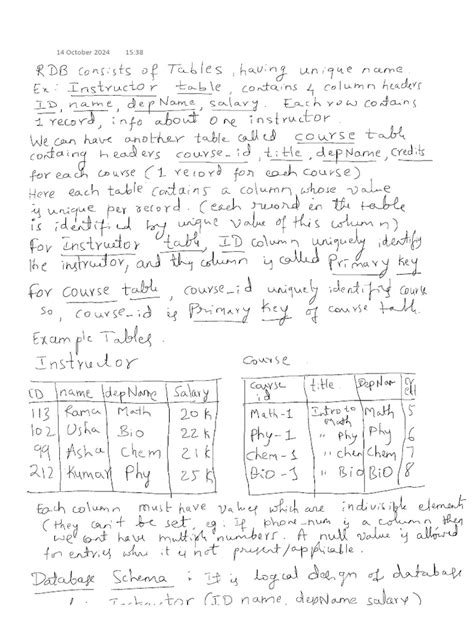 14 October 2024 15:38
RDB consists of Tables, having unique name.
Ex: Instructor table, contains 4 column headers
ID, name, depName, salary. Each row contains
1 record, info about one instructor.
We can have another table called course table
containg headers course_id, title, depName, credits
for each course (1 record for each course)
Here each table contains a column, whose value
is unique per record. (each record in the table
is identified by unique value of this column)
For Instructor table, ID column uniquely identify
the instructor, and this column is called Primary key
For course table, course_id uniquely identifies course
so, course_id is Primary Key of course table.
Example Tables.
Instructor Course
ID name depName Salary course id title DepNam
113 Rama Math 20k Math-1 Intro to Math Math 5
102 Usha Bio 22k Phy-1 " Phy Phy 6
99 Asha Chem 21k Chem-1 " chem Chem 7
212 Kumar Phy 25k BIO-1 " Bio BIO 8
Each column must have values which are indivisible element
(they can't be set, eg. If phone_num is a column, then
we cant have multiple numbers. A null value is allowed
for entries when it is not present/applicable.
Database Schema : It is logical design of database
Instructor (ID name, depName salary)